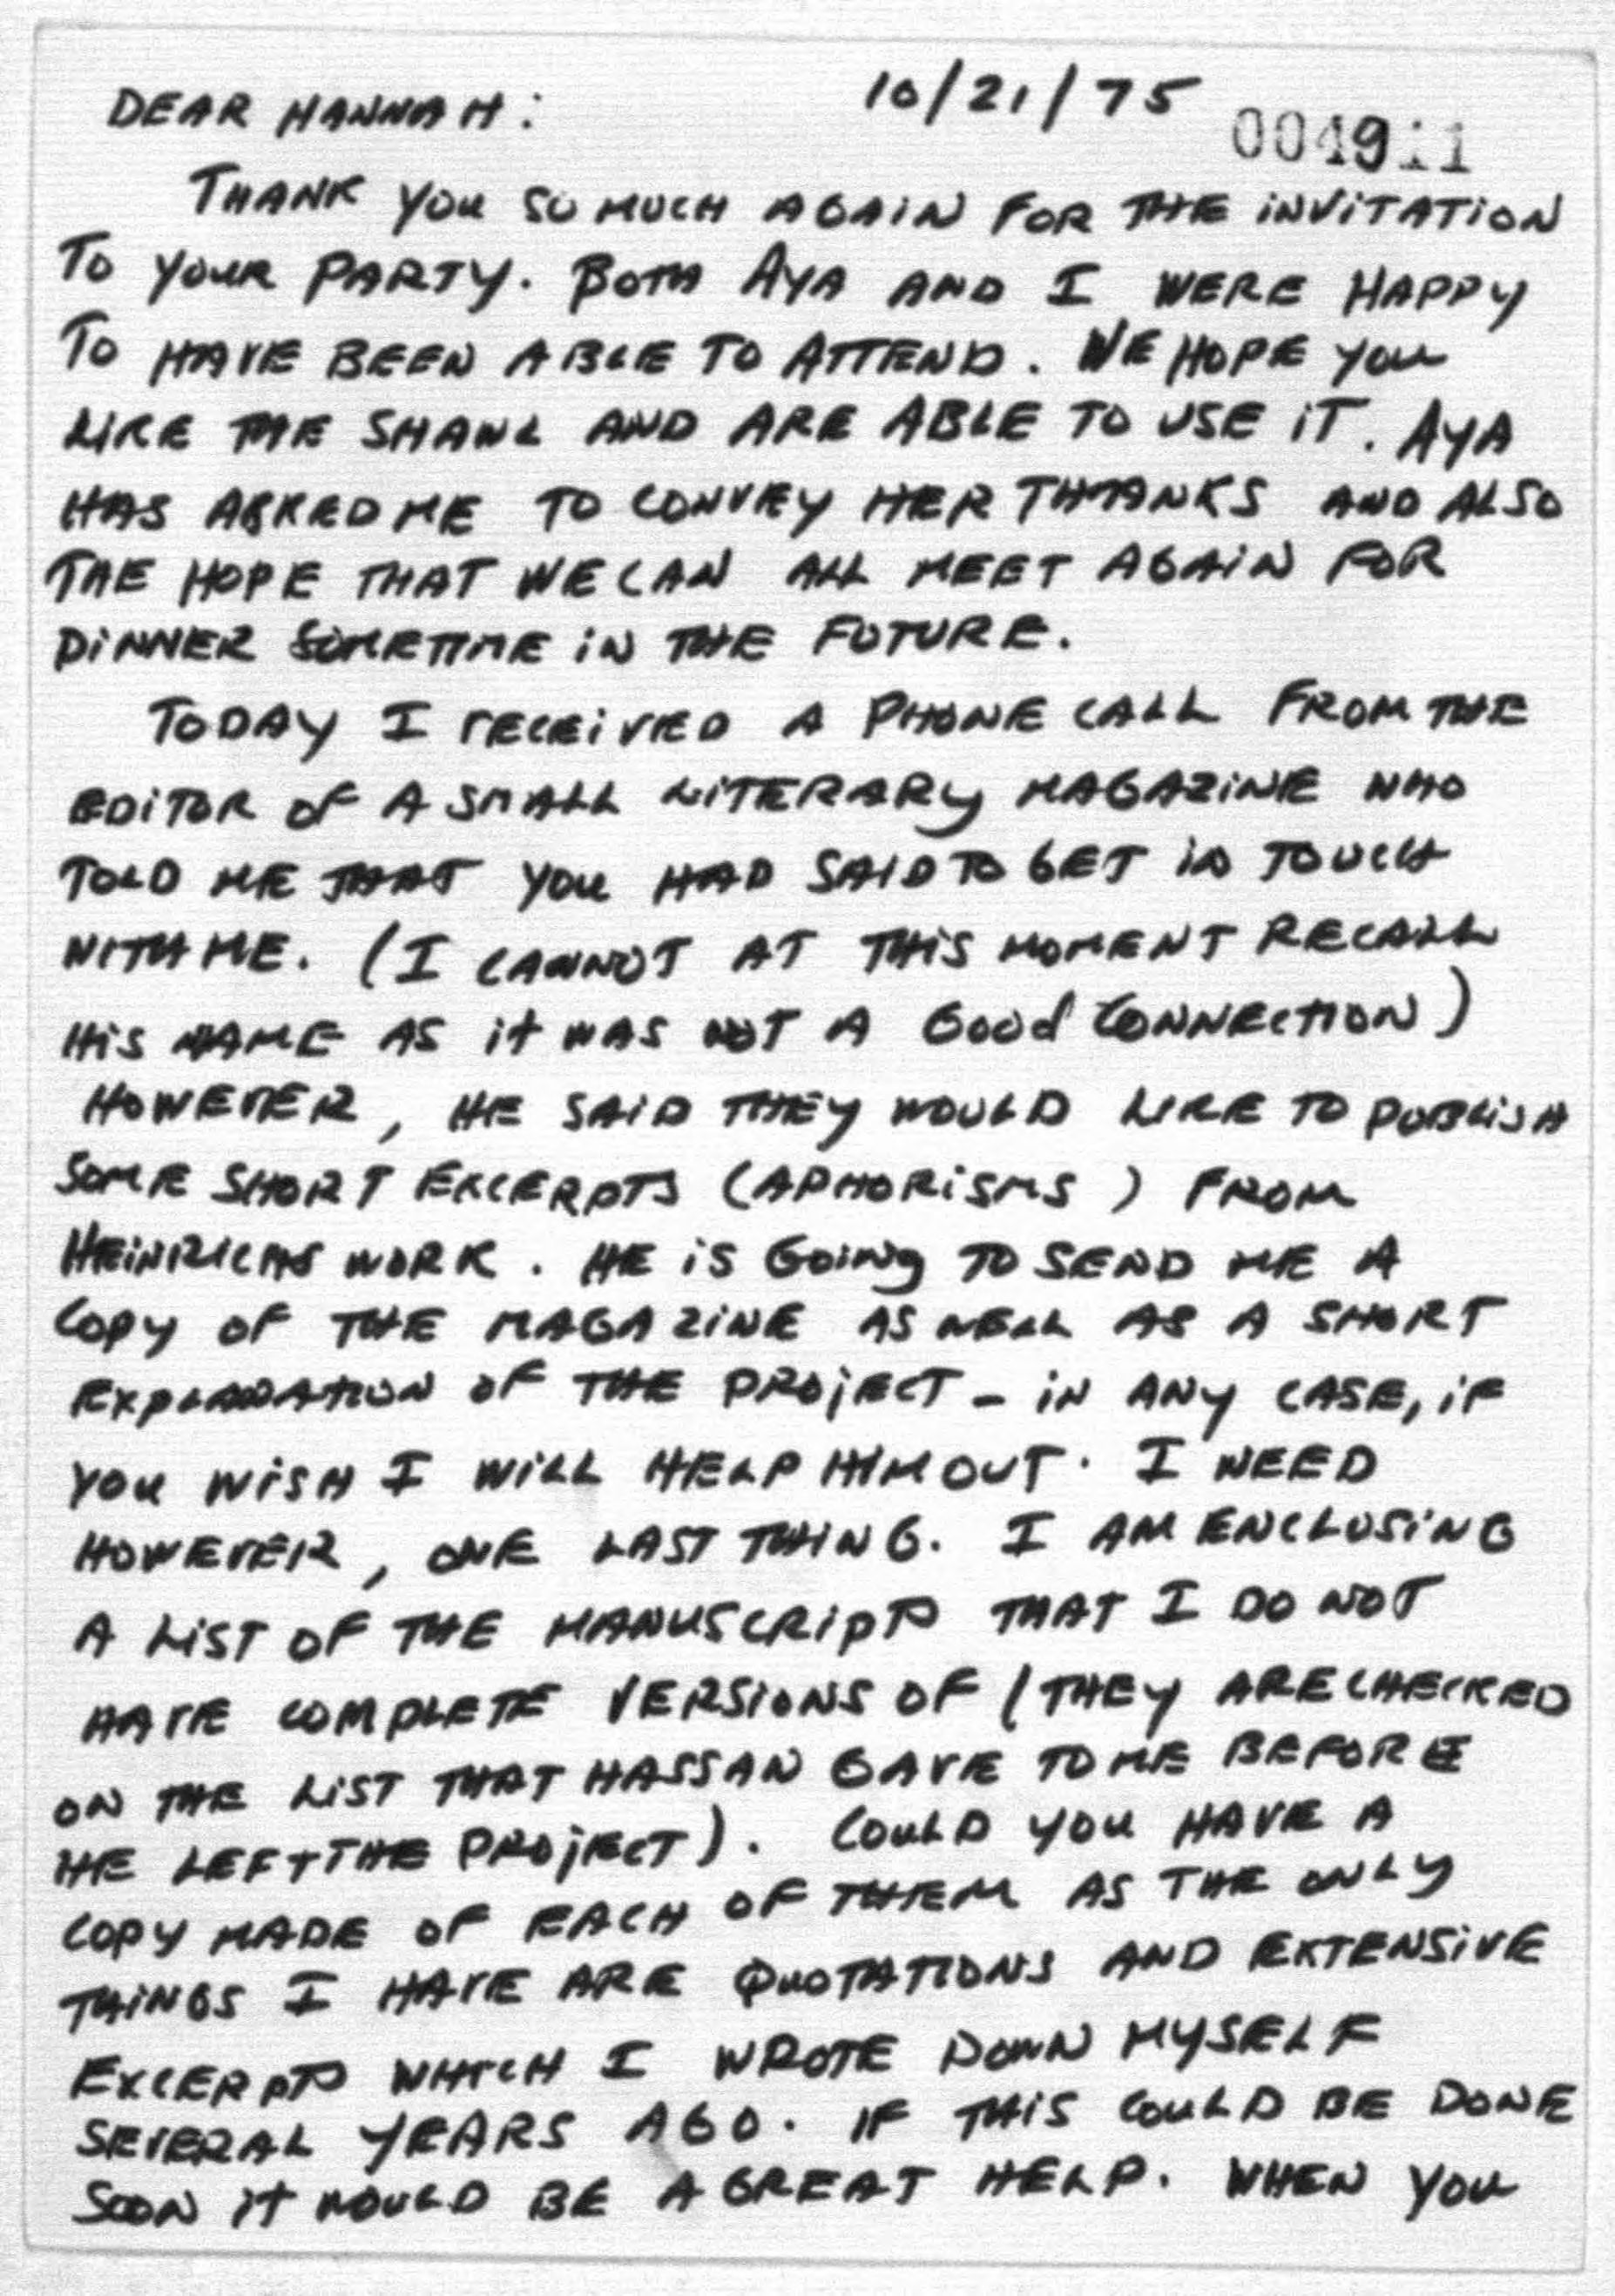 DEAR HANNAH:
10/21/75
004911
THANK YOU SO MUCH AGAIN FOR THE INVITATION
TO YOUR PARTY. BOTH AYA AND I WERE HAPPY
TO HAVE BEEN ABLE TO ATTEND. WE HOPE YOU
LIKE THE SHAWL AND ARE ABLE TO USE IT. AYA
HAS ASKED ME TO CONVEY HER THANKS AND ALSO
THE HOPE THAT WE CAN ALL MEET AGAIN FOR
DINNER SOMETIME IN THE FUTURE.
TODAY I RECEIVED A PHONE CALL FROM THE
EDITOR OF A SMALL LITERARY MAGAZINE WHO
TOLD ME THAT YOU HAD SAID TO GET IN TOUCH
WITH ME. (I CANNOT AT THIS MOMENT RECALL
HIS NAME AS it WAS NOT A Good CONNECTION)
HOWEVER, HE SAID THEY WOULD LIKE TO PUBLISH
SOME SHORT EXCERPTS (APHORISMS) FROM
HEINRICHS WORK. HE IS GOING TO SEND ME A
COPY OF THE MAGAZINE AS WELL AS A SHORT
EXPLANATION OF THE PROJECT - IN ANY CASE, IF
YOU WISH I WILL HELP HIM OUT. I NEED
HOWEVER, ONE LAST THING. I AM ENCLOSING
A LIST OF THE MANUSCRIPTS THAT I DO NOT
HAVE COMPLETE VERSIONS OF (THEY ARE CHECKED
ON THE LIST THAT HASSAN GAVE TO ME BEFORE
HE LEFT THE PROJECT). COULD YOU HAVE A
COPY MADE OF EACH OF THEM AS THE ONLY
THINGS I HAVE ARE QUOTATIONS AND EXTENSIVE
EXCERPTS WHICH I WROTE DOWN MYSELF
SEVERAL YEARS AGO. IF THIS COULD BE DONE
SOON IT WOULD BE A GREAT HELP. WHEN YOU